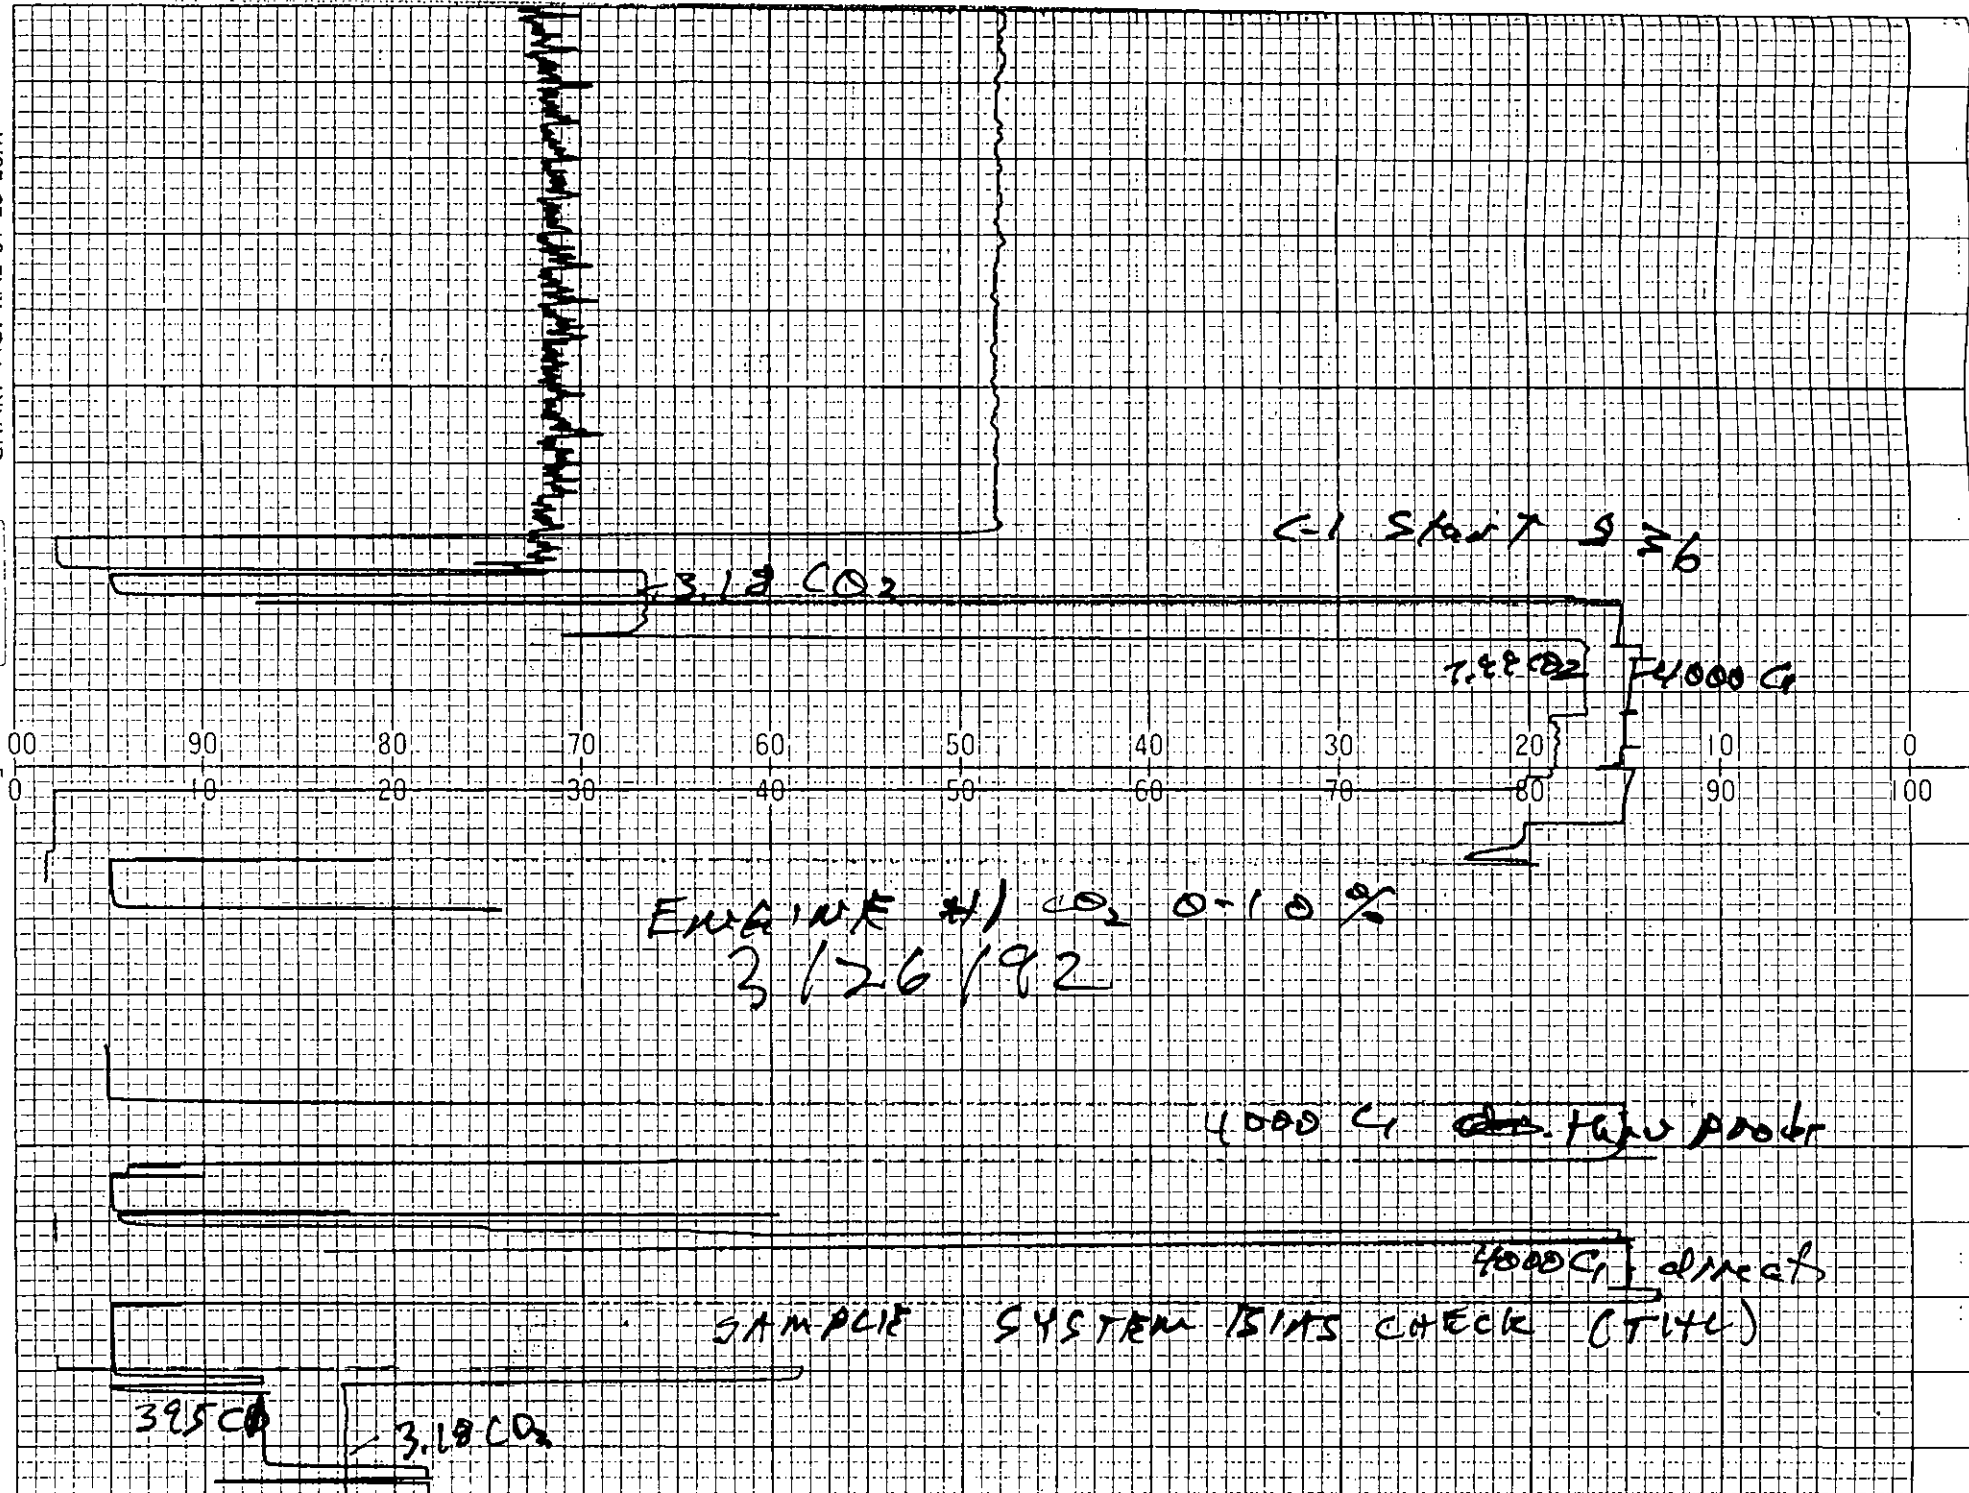 C-1 Start 9 36
3.18 CO2
4000 C1
00 90 80 70 60 50 40 30 20 10 0
0 10 20 30 40 50 60 70 80 90 100
ENGINE #1 CO2 0-10 %
3/26/92
4000 C1 thru probe
4000 C1 direct
SAMPLE SYSTEM BIAS CHECK (THC)
395 CO
3.18 CO2